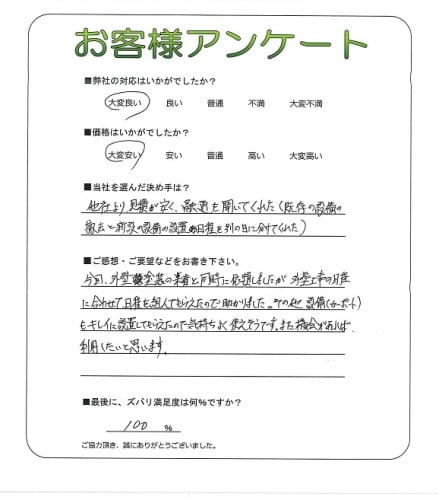 お客様アンケート
■弊社の対応はいかがでしたか？
大変良い 良い 普通 不満 大変不満
■価格はいかがでしたか？
大変安い 安い 普通 高い 大変高い
■当社を選んだ決め手は？
他社より見積が安く、融通を聞いてくれた（既存の設備の
撤去と新設の設備の設置の日程を別の日に分けてくれた）
■ご感想・ご要望などをお書き下さい。
今回、外壁塗装の業者と同時に依頼しましたが 外壁工事の日程
に合わせて日程を組んでもらえたので助かりました。その他 設備（カーポート）
もキレイに設置してもらえたので気持ちよく使えそうです。また機会があれば、
利用したいと思います。
■最後に、ズバリ満足度は何%ですか？
100 %
ご協力頂き、誠にありがとうございました。